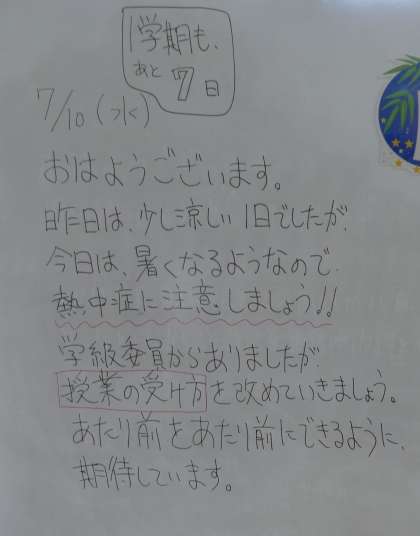 1学期も、
あと7日
7/10(水)
おはようございます。
昨日は、少し涼しい1日でしたが、
今日は、暑くなるようなので、
熱中症に注意しましょう!!
学級委員からありましたが、
授業の受け方を改めていきましょう。
あたり前をあたり前にできるように、
期待しています。